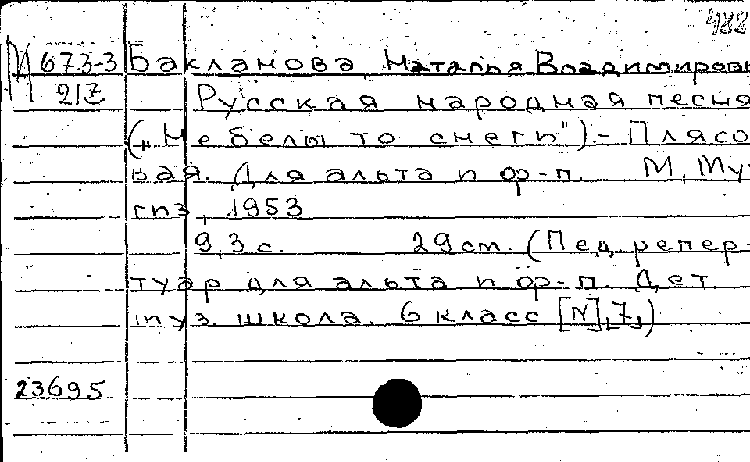 488
М 673-3 Бакланова Наталья Владимировн
217 Русская народная песня
(„Не белы то снеги") - Плясо
вая. Для альта и ф-п. М, Му
гиз, 1953
9,3 с. 29 см. (Пед. репер-
туар для альта и ф-п. Дет.
муз. школа. 6 класс [N],7,)
23695